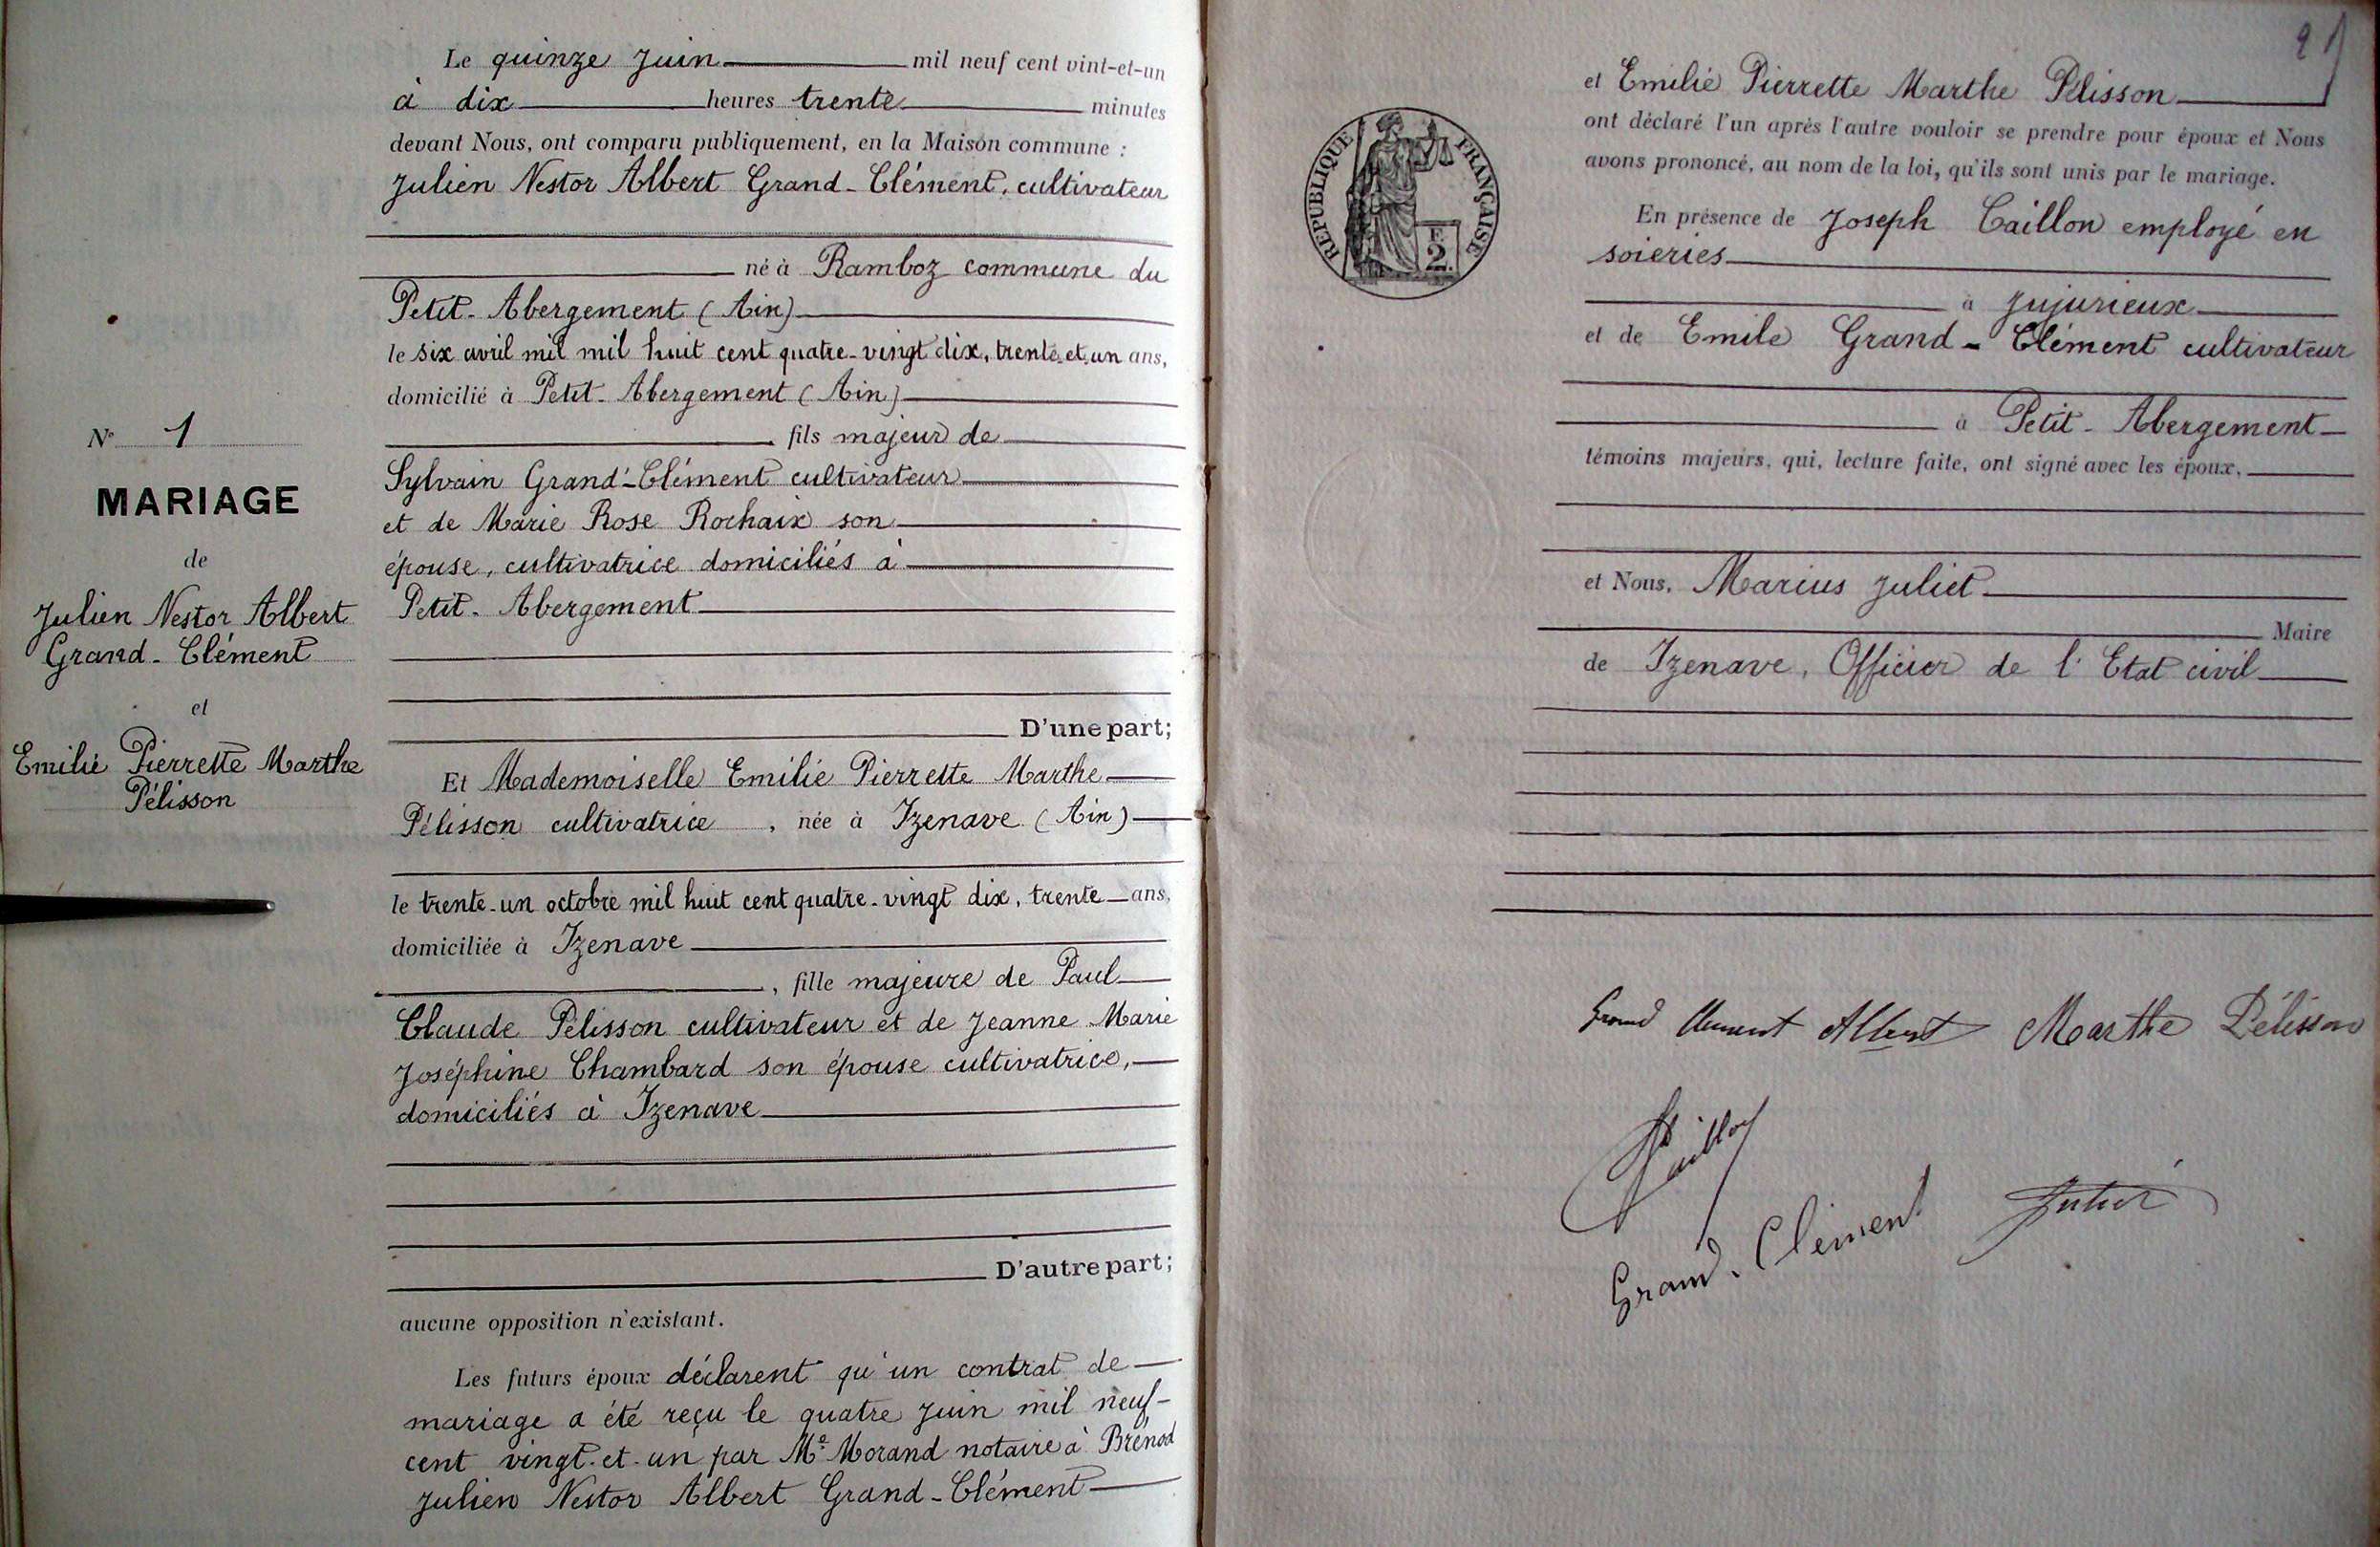 N° 1
MARIAGE
de
Julien Nestor Albert
Grand-Clément
et
Emilie Pierrette Marthe
Pélisson
Le quinze Juin mil neuf cent vint-et-un
à dix heures trente minutes
devant Nous, ont comparu publiquement, en la Maison commune :
Julien Nestor Albert Grand-Clément, cultivateur
né à Ramboz commune du
Petit-Abergement (Ain)
le six avril mil mil huit cent quatre-vingt dix, trente et un ans,
domicilié à Petit-Abergement (Ain)
fils majeur de
Sylvain Grand-Clément cultivateur
et de Marie Rose Rochaix son
épouse, cultivatrice domiciliés à
Petit-Abergement
D'une part;
Et Mademoiselle Emilie Pierrette Marthe
Pélisson cultivatrice, née à Izenave (Ain)
le trente-un octobre mil huit cent quatre-vingt dix, trente ans,
domiciliée à Izenave
, fille majeure de Paul
Claude Pélisson cultivateur et de Jeanne Marie
Joséphine Chambard son épouse cultivatrice,
domiciliés à Izenave
D'autre part;
aucune opposition n'existant.
Les futurs époux déclarent qu'un contrat de
mariage a été reçu le quatre Juin mil neuf-
cent vingt-et-un par Me Morand notaire à Brénod
Julien Nestor Albert Grand-Clément
et Emilie Pierrette Marthe Pélisson
ont déclaré l'un après l'autre vouloir se prendre pour époux et Nous
avons prononcé, au nom de la loi, qu'ils sont unis par le mariage.
RÉPUBLIQUE FRANÇAISE
F.
2.
En présence de Joseph Caillon employé en
soieries
à Jujurieux
et de Emile Grand-Clément cultivateur
à Petit-Abergement
témoins majeurs, qui, lecture faite, ont signé avec les époux,
et Nous, Marius Juliet
Maire
de Izenave, Officier de l'Etat civil
Grand Clément Albert Marthe Pélisson
Caillon
Grand-Clément Juliet